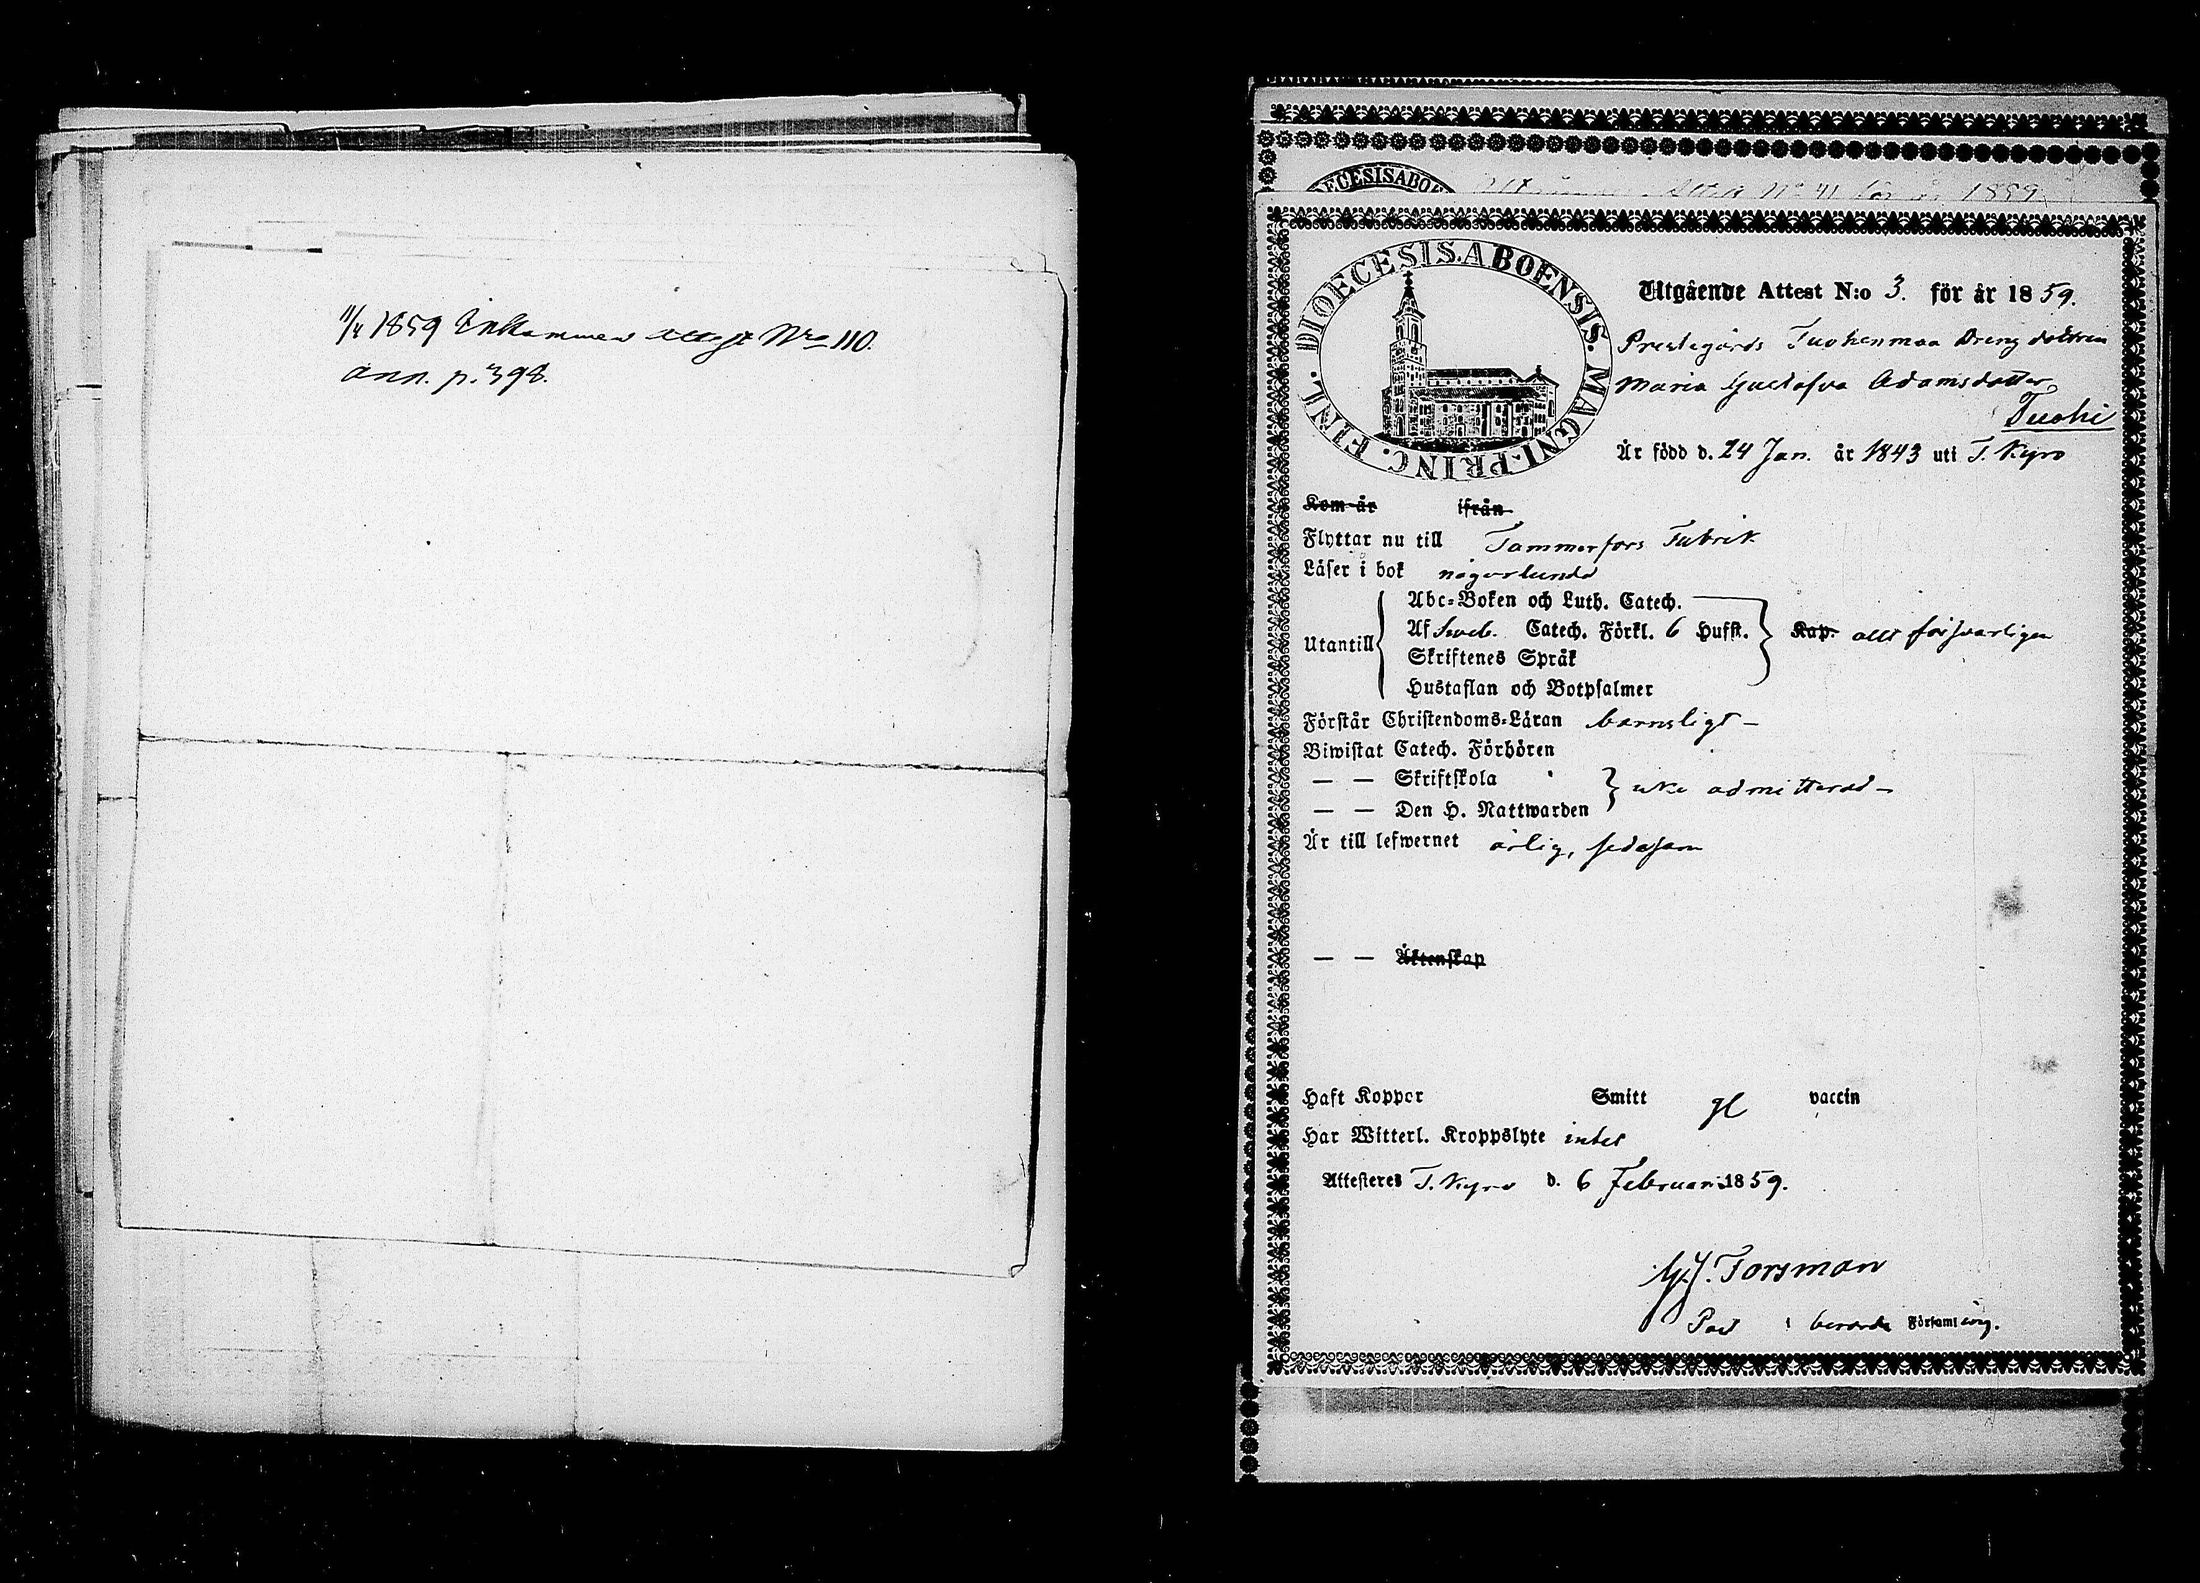 11/4 1859 Inkommen attest Nro 110.
ann. p. 398.
DIOECESIS ABO
Attest No 41 för år 1859
DIOECESIS. ABOENSIS. MAGNI. PRINC. FINL.
Utgående Attest N:o 3. för år 1859.
Prestegårds Tuohenmaa Dreng dottren
Maria Gustafva Adamsdotter
Tuohi
Är född d. 24 Jan. år 1843 uti T. Kyro
Kom år ifrån
Flyttar nu till Tammerfors Fabrik
Läser i bok någorlunda
Utantill
Abc-Boken och Luth. Catech.
Af Sveb. Catech. Förkl. 6 Hufst. Kap. allt försvarligen
Skriftenes Språk
Hustaflan och Botpsalmer
Förstår Christendoms-Läran barnsligt –
Biwistat Catech. Förhören
— — Skriftskola
icke admitterad –
— — Den H. Nattwarden
Är till lefwernet ärlig, sedesam
— — Äktenskap
Haft Koppor Smitt vaccin
Har Witterl. Kroppslyte intet
Attesteres T. Kyro d. 6 Februari 1859.
G. J. Forsman
Past i berörde Församling.